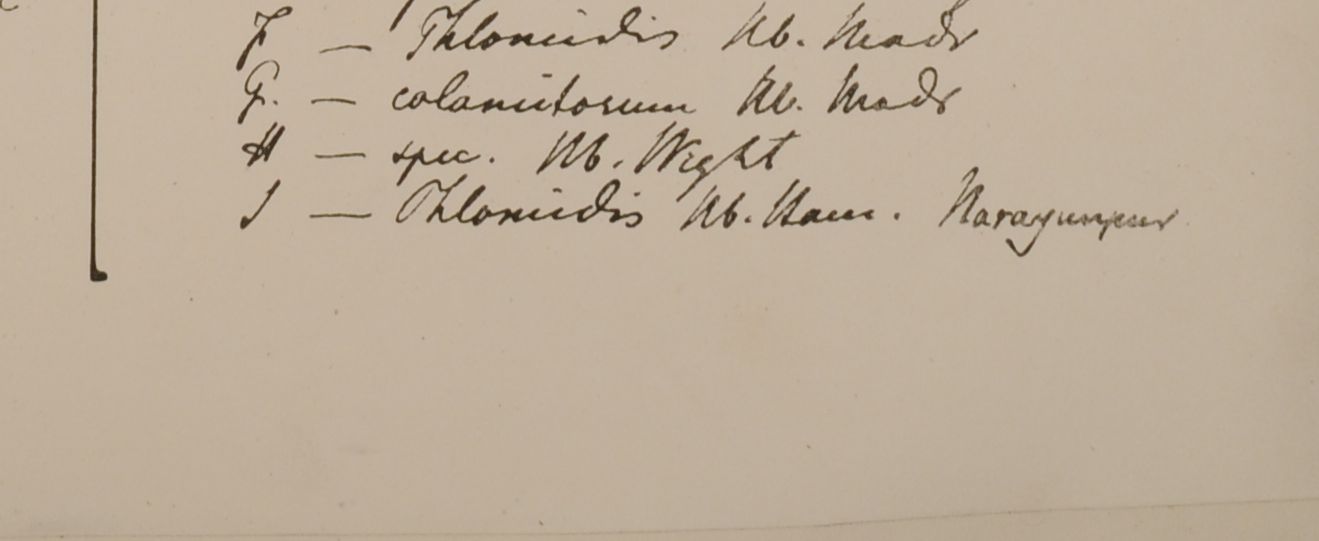 F — Phlomidis Hb. Madr
G. — calamitosum Hb. Madr
H — spec. Hb. Wight
I — Phlomidis Hb. Ham. Narayunpur